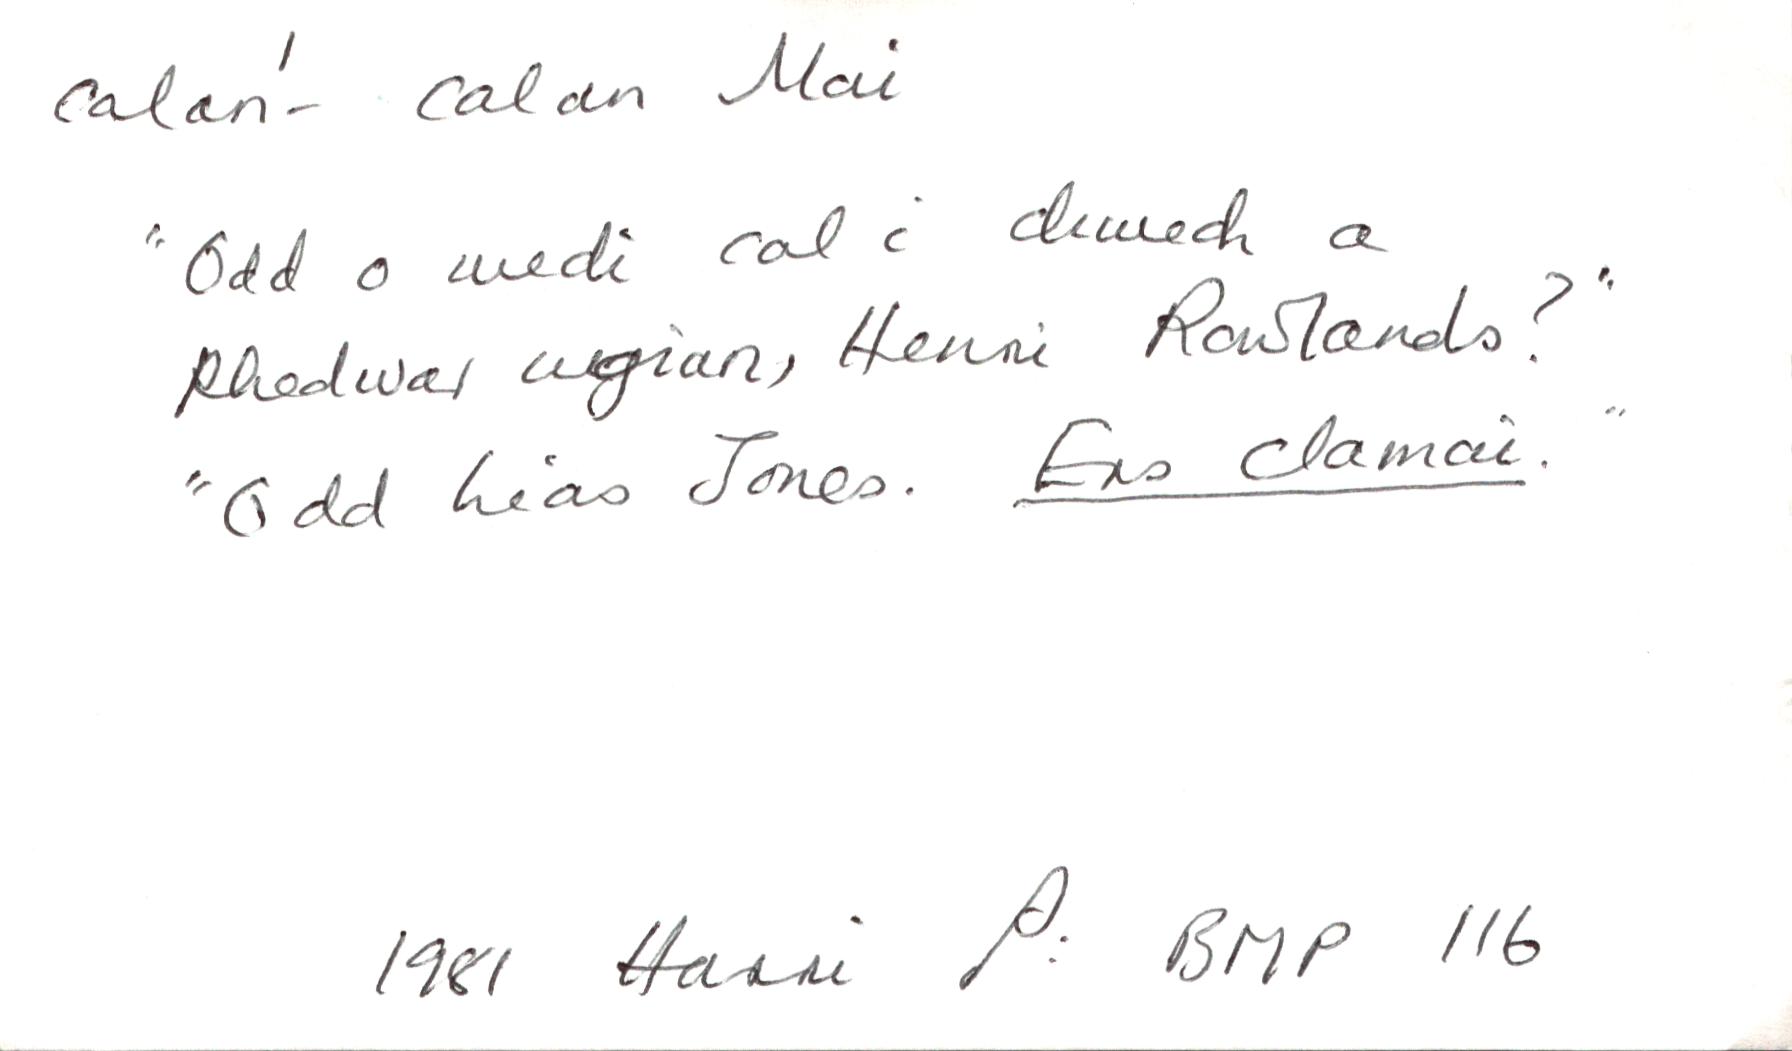 calan¹- calan Mai
"Odd o wedi cal i chwech a
Rhedwar ugian, Henri Rowlands?"
"Odd hias Jones. Ers clamai."
1981 Harri P. BMP 116